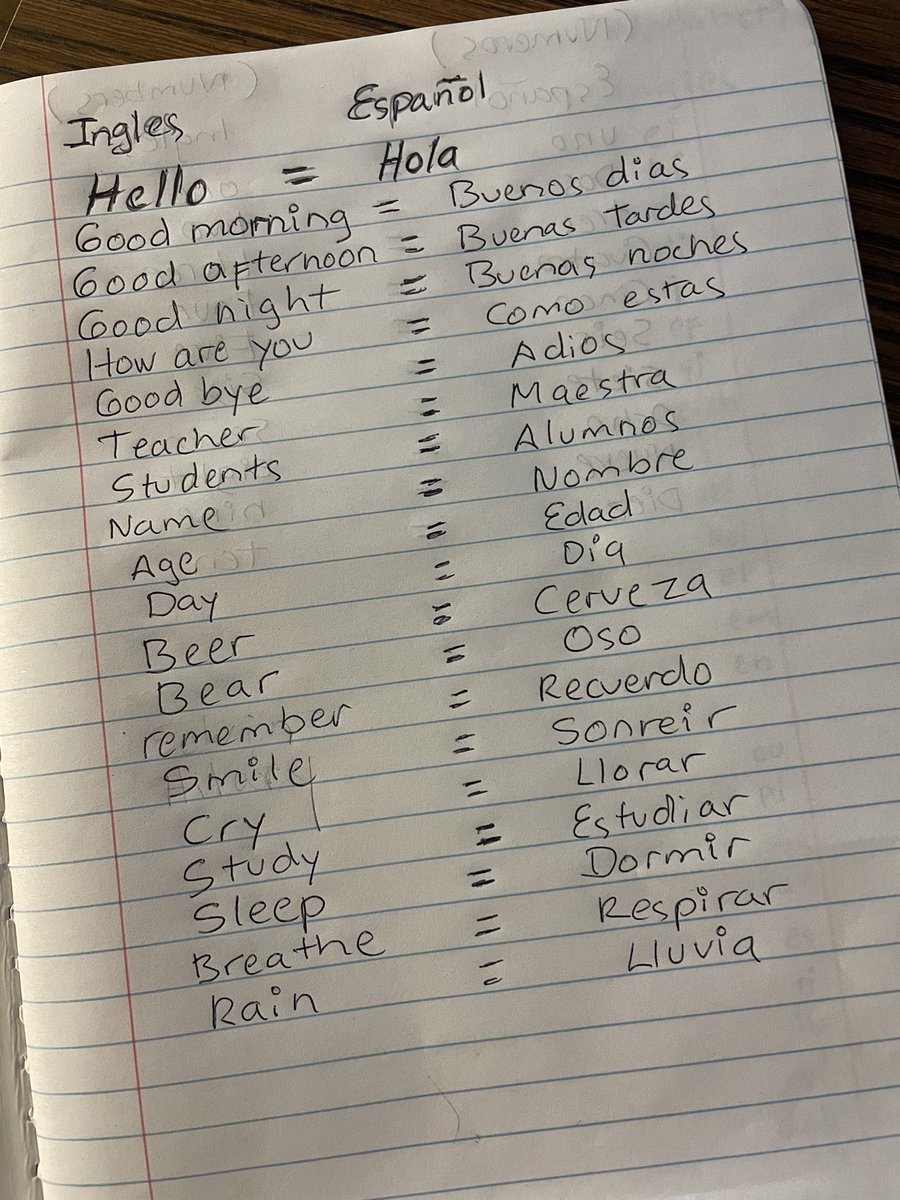 Ingles Español
Hello = Hola
Good morning = Buenos dias
Good afternoon = Buenas tardes
Good night = Buenas noches
How are you = Como estas
Good bye = Adios
Teacher = Maestra
Students = Alumnos
Name = Nombre
Age = Edad
Day = Dia
Beer = Cerveza
Bear = Oso
remember = Recuerdo
Smile = Sonreir
Cry = Llorar
Study = Estudiar
Sleep = Dormir
Breathe = Respirar
Rain = Lluvia